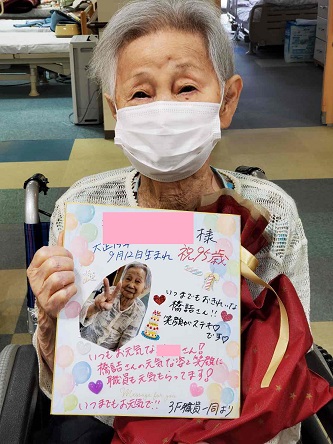 様
9月12日生まれ 祝95歳
いつまでもおきれいな
橋詰さん!!
笑顔がステキ
です
いつもお元気な さん!
橋詰さんの元気な姿と笑顔に
職員も元気もらってます!
いつまでもお元気で!! 3F職員一同より